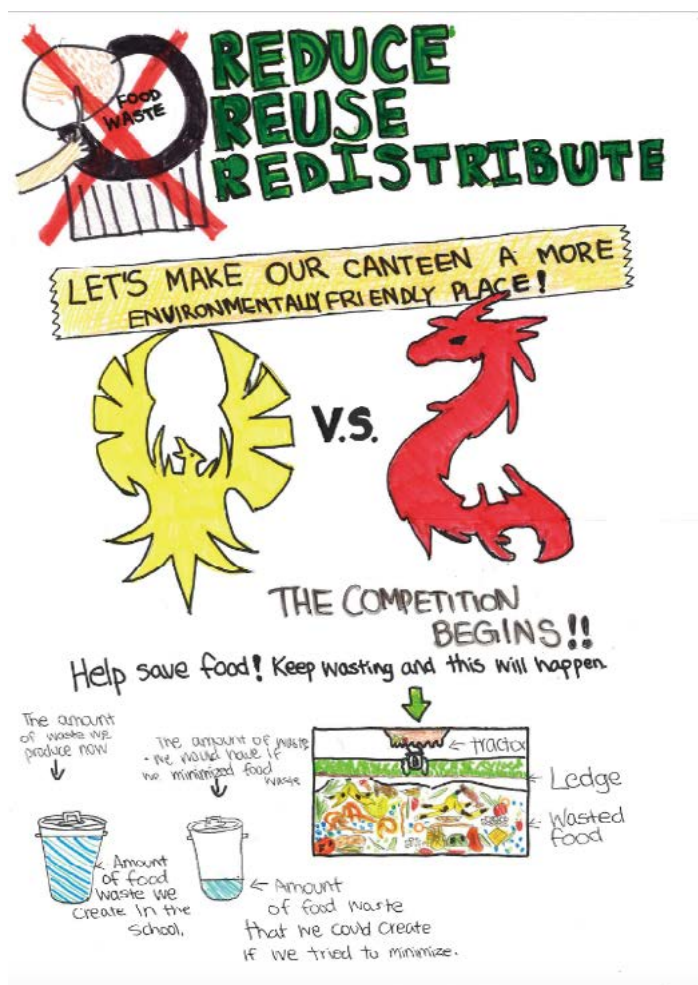 FOOD
WASTE
REDUCE
REUSE
REDISTRIBUTE
LET'S MAKE OUR CANTEEN A MORE
ENVIRONMENTALLY FRIENDLY PLACE!
V.S.
THE COMPETITION
BEGINS!!
Help save food! Keep wasting and this will happen
The amount
of waste we
produce now
The amount of waste
we would have if
we minimized food
waste
Amount
of food
waste we
create in the
school.
Amount
of food waste
that we could create
if we tried to minimize.
tractor
Ledge
Wasted
food